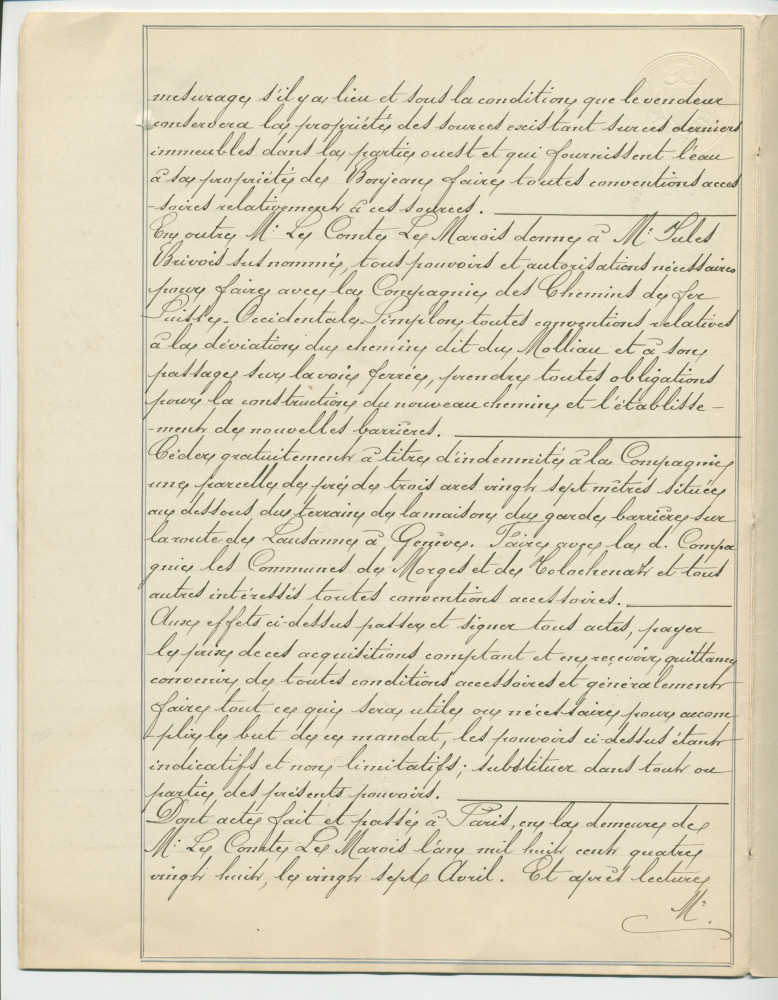 mesurage s'il y a lieu et sous la condition que le vendeur
conservera la propriété des sources existant sur ces derniers
immeubles dans la partie ouest et qui fournissent l'eau
à sa propriété de Bonjean faire toutes conventions acces
-soires relativement à ces sources.
En outre Mr Le Comte Le Marois donne à Mr Jules
Brivois susnommé, tous pouvoirs et autorisations nécessaires
pour faire avec la Compagnie des Chemins de fer
Suisse-Occidentale-Simplon toutes conventions relatives
à la déviation du chemin dit du Molliau et à son
passage sur la voie ferrée, prendre toutes obligations
pour la construction du nouveau chemin et l'établisse-
-ment de nouvelles barrières.
Céder gratuitement à titre d'indemnité à la Compagnie
une parcelle de pré de trois ares vingt sept mètres située
au dessous du terrain de la maison du garde barrière sur
la route de Lausanne à Genève. Faire avec la d. Compa
gnie les Communes de Morges et de Tolochenaz et tous
autres intéressés toutes conventions accessoires.
Aux effets ci-dessus passer et signer tous actes, payer
le prix de ces acquisitions comptant et en reçevoir quittance
convenir de toutes conditions accessoires et généralement
faire tout ce qui sera utile ou nécessaire pour accom
-plir le but de ce mandat, les pouvoirs ci-dessus étant
indicatifs et non limitatifs; substituer dans tout ou
partie des présents pouvoirs.
Dont acte fait et passé à Paris, en la demeure de
Mr Le Comte Le Marois l'an mil huit cent quatre
vingt huit, le vingt sept Avril. Et après lecture
Mr.